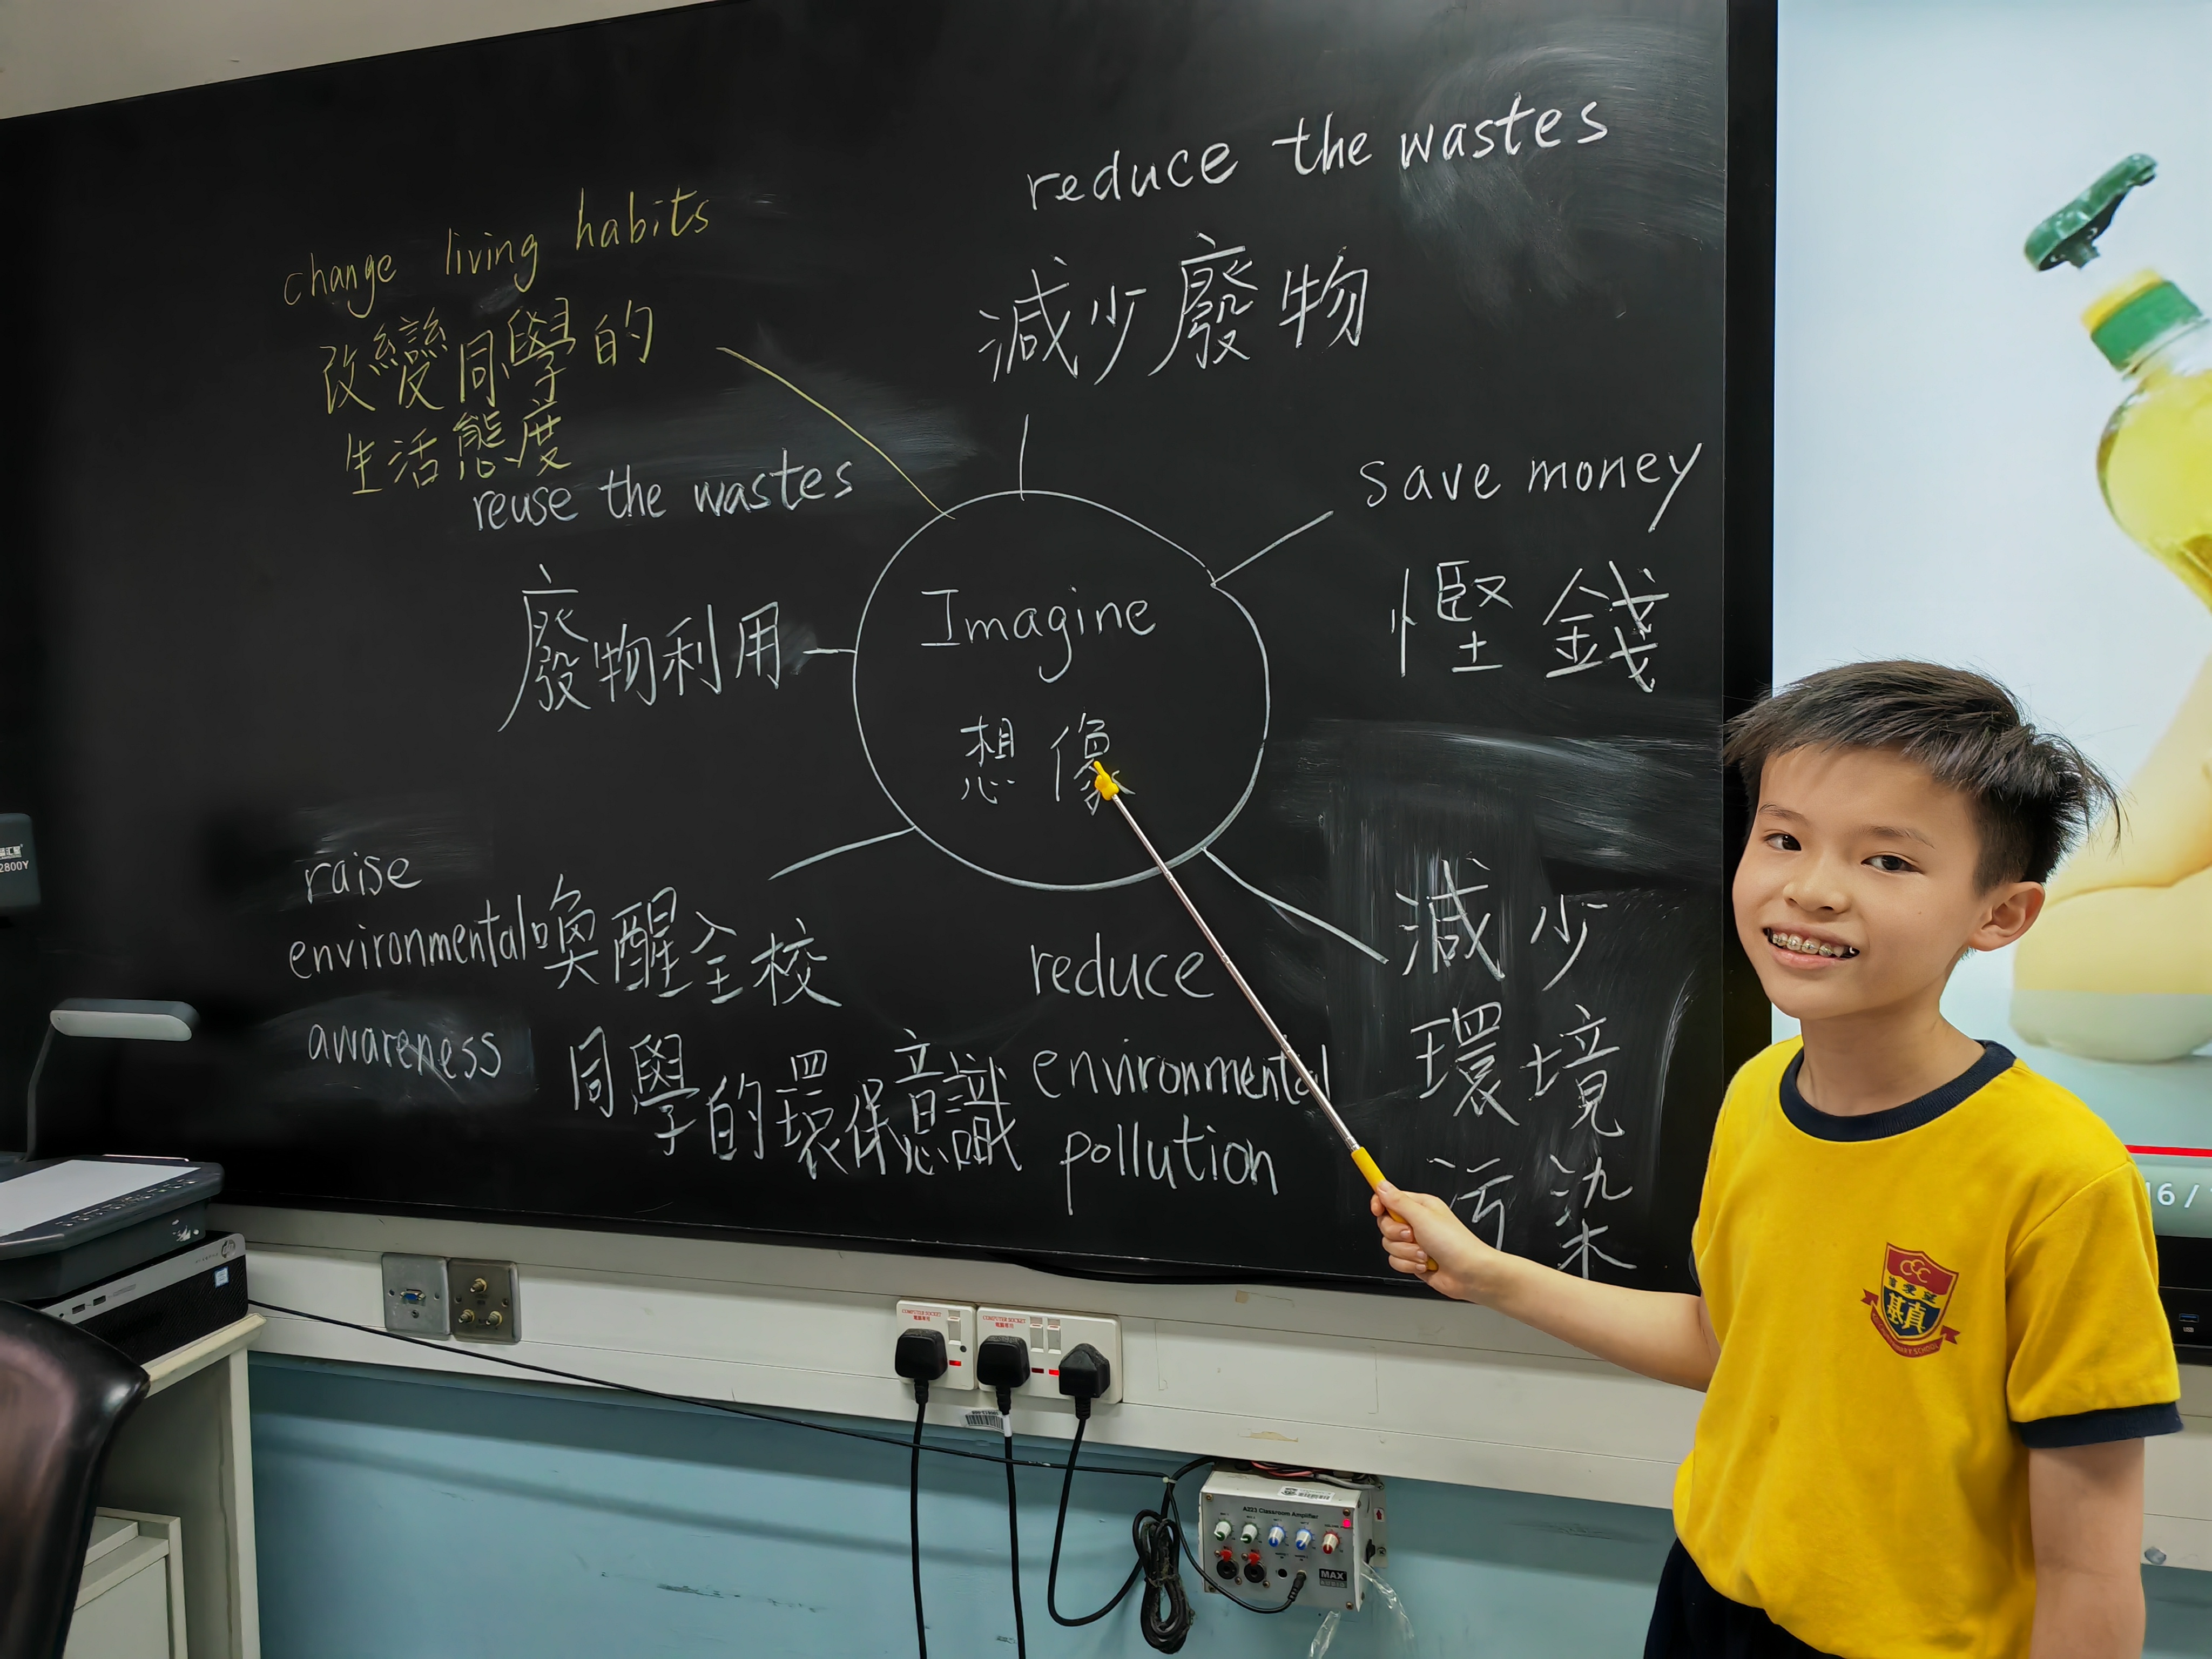 reduce the wastes
減少廢物
change living habits
改變同學的
生活態度
save money
慳錢
reuse the wastes
廢物利用
Imagine
想像
raise
environmental
awareness
喚醒全校
同學的環保意識
reduce
environmental
pollution
減少
環境
污染
2800Y
16 /
CCC
基真
COMPUTER SOCKET
COMPUTER SOCKET
A223 Classroom Amplifier
MAX